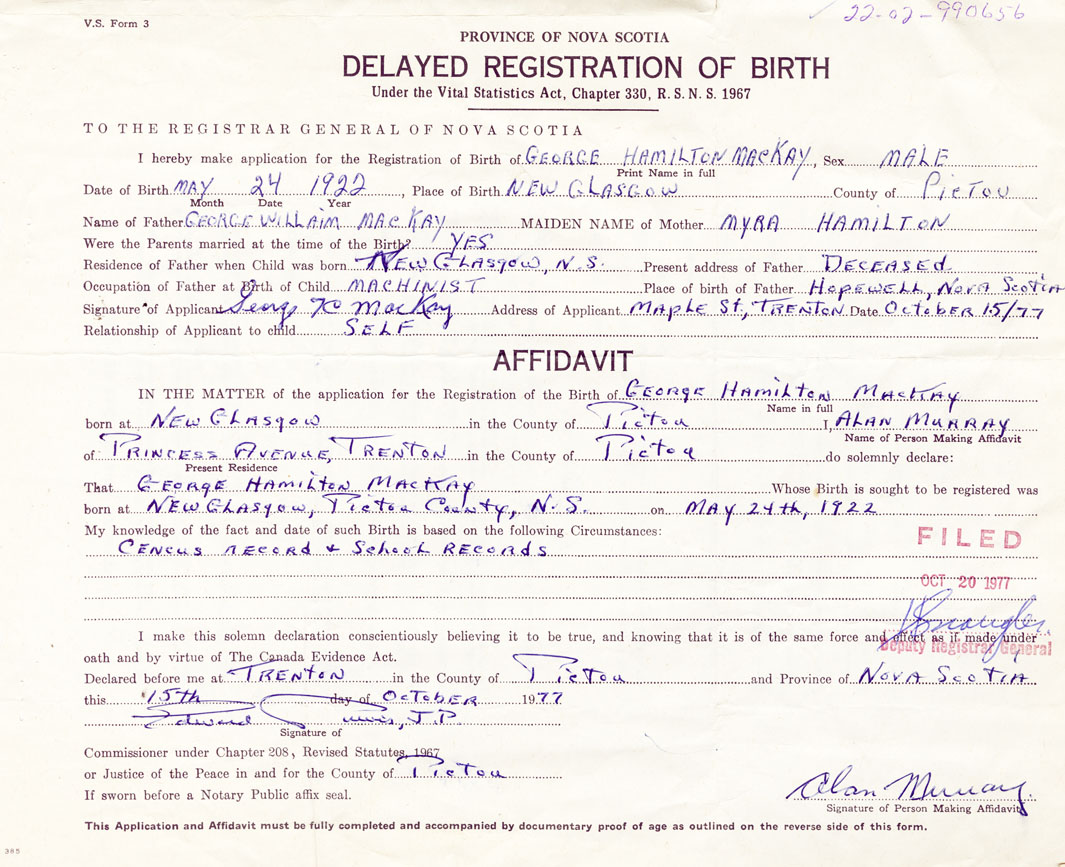 V.S. Form 3
22-02-990656
PROVINCE OF NOVA SCOTIA
DELAYED REGISTRATION OF BIRTH
Under the Vital Statistics Act, Chapter 330, R. S. N. S. 1967
TO THE REGISTRAR GENERAL OF NOVA SCOTIA
I hereby make application for the Registration of Birth of GEORGE HAMILTON MACKAY, Sex MALE
Print Name in full
Date of Birth MAY 24 1922, Place of Birth NEW GLASGOW County of PICTOU
Month Date Year
Name of Father GEORGE WILLAIM MACKAY MAIDEN NAME of Mother MYRA HAMILTON
Were the Parents married at the time of the Birth? YES
Residence of Father when Child was born NEW GLASGOW, N.S. Present address of Father DECEASED
Occupation of Father at Birth of Child MACHINIST Place of birth of Father HOPEWELL, NOVA SCOTIA
Signature of Applicant George H MacKay Address of Applicant MAPLE ST., TRENTON Date OCTOBER 15/77
Relationship of Applicant to child SELF
AFFIDAVIT
IN THE MATTER of the application for the Registration of the Birth of GEORGE HAMILTON MACKAY
Name in full
born at NEW GLASGOW in the County of PICTOU I, ALAN MURRAY
Name of Person Making Affidavit
of PRINCESS AVENUE, TRENTON in the County of PICTOU do solemnly declare:
Present Residence
That GEORGE HAMILTON MACKAY Whose Birth is sought to be registered was
born at NEW GLASGOW, PICTOU COUNTY, N.S. on MAY 24th, 1922
My knowledge of the fact and date of such Birth is based on the following Circumstances:
CENCUS RECORD & SCHOOL RECORDS
FILED
OCT 20 1977
I make this solemn declaration conscientiously believing it to be true, and knowing that it is of the same force and effect as if made under
Deputy Registrar General
oath and by virtue of The Canada Evidence Act.
Declared before me at TRENTON in the County of PICTOU and Province of NOVA SCOTIA
this 15th day of OCTOBER 1977
Edward J.P
Signature of
Commissioner under Chapter 208, Revised Statutes, 1967
or Justice of the Peace in and for the County of PICTOU
If sworn before a Notary Public affix seal.
Alan Murray
Signature of Person Making Affidavit
This Application and Affidavit must be fully completed and accompanied by documentary proof of age as outlined on the reverse side of this form.
385